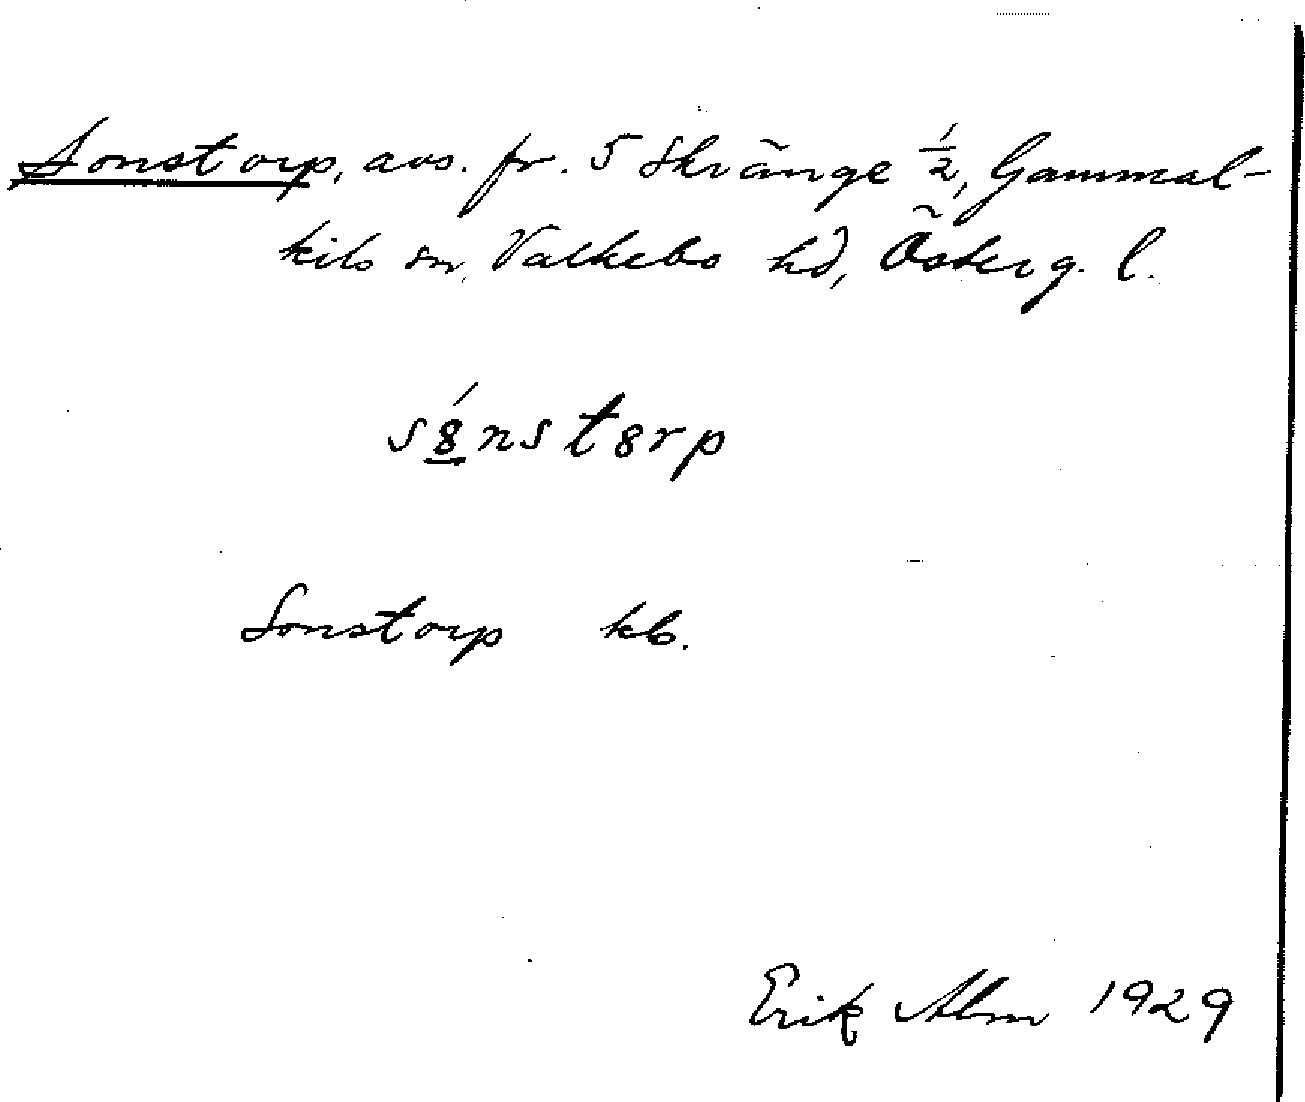 Sonstorp, avs. fr. 5 Skränge ½, Gammal-
kils sn, Valkebo hd, Österg. l.
s8́nst8rp
Sonstorp kb.
Erik Alm 1929